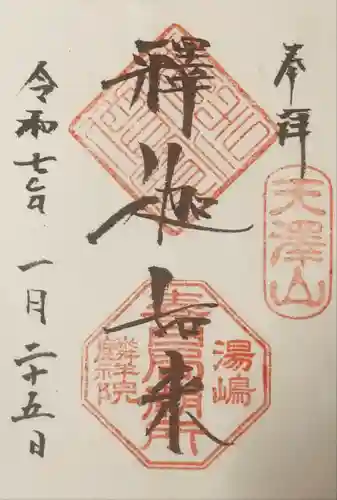 奉拝
天澤山
釋迦如来
湯嶋
麟祥院
令和七年
一月二十五日